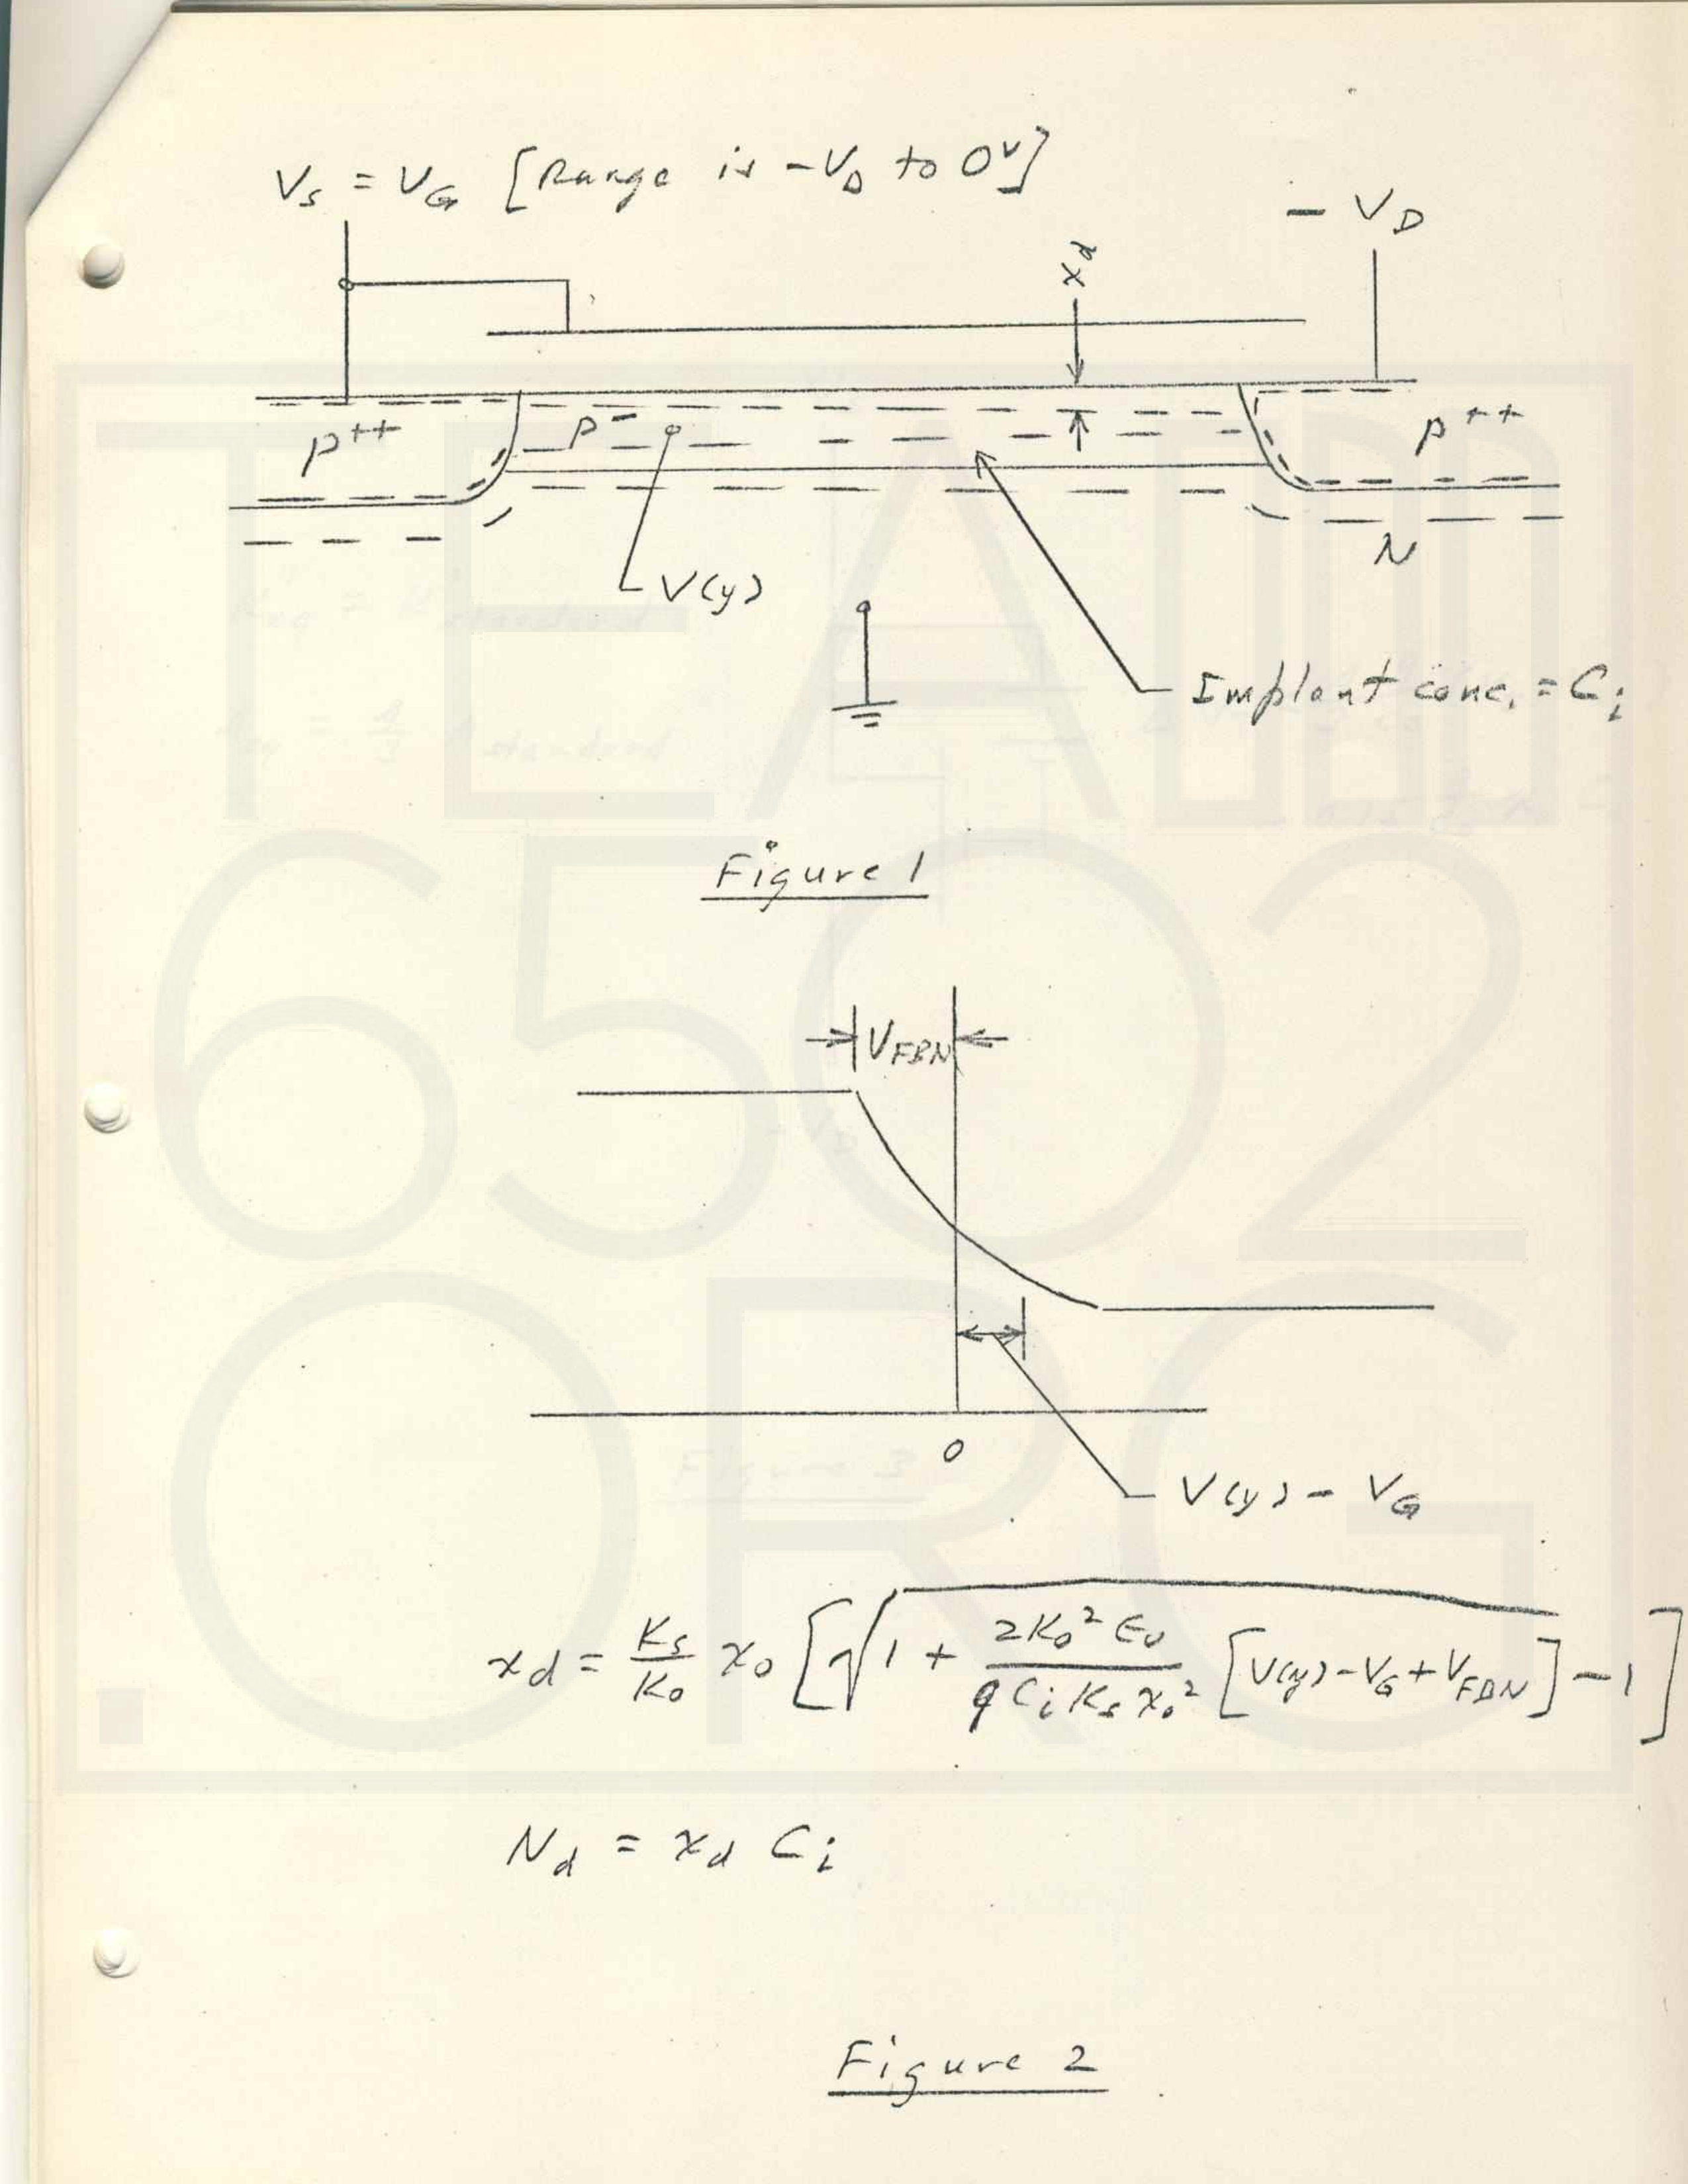 V_S = V_G [Range is -V_D to 0^V]
- V_D
x_d
p++
p-
p++
N
V(y)
Implant conc. = C_i
Figure 1
V_FBN
0
V(y) - V_G
x_d = K_s/K_o x_o [√(1 + 2K_o² ε_o / q C_i K_s x_o² [V(y) - V_G + V_FBN]) - 1]
N_d = x_d C_i
Figure 2
TEAM
6502
.ORG